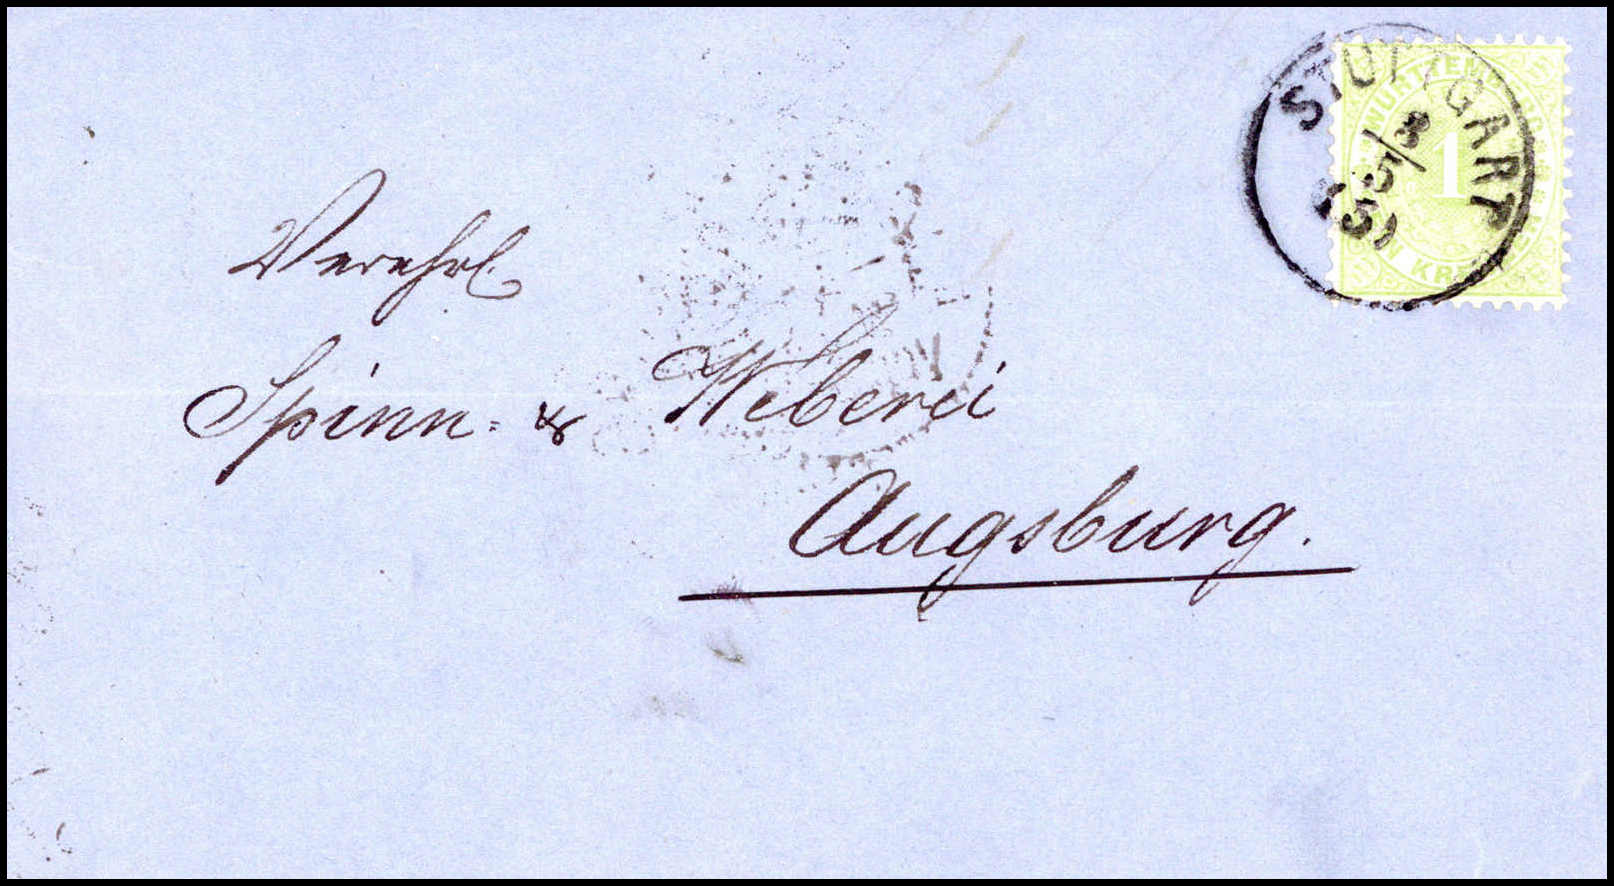 STUTTGART
WÜRTTEMBERG
1
Verehrl.
Spinn- & Weberei
Augsburg.